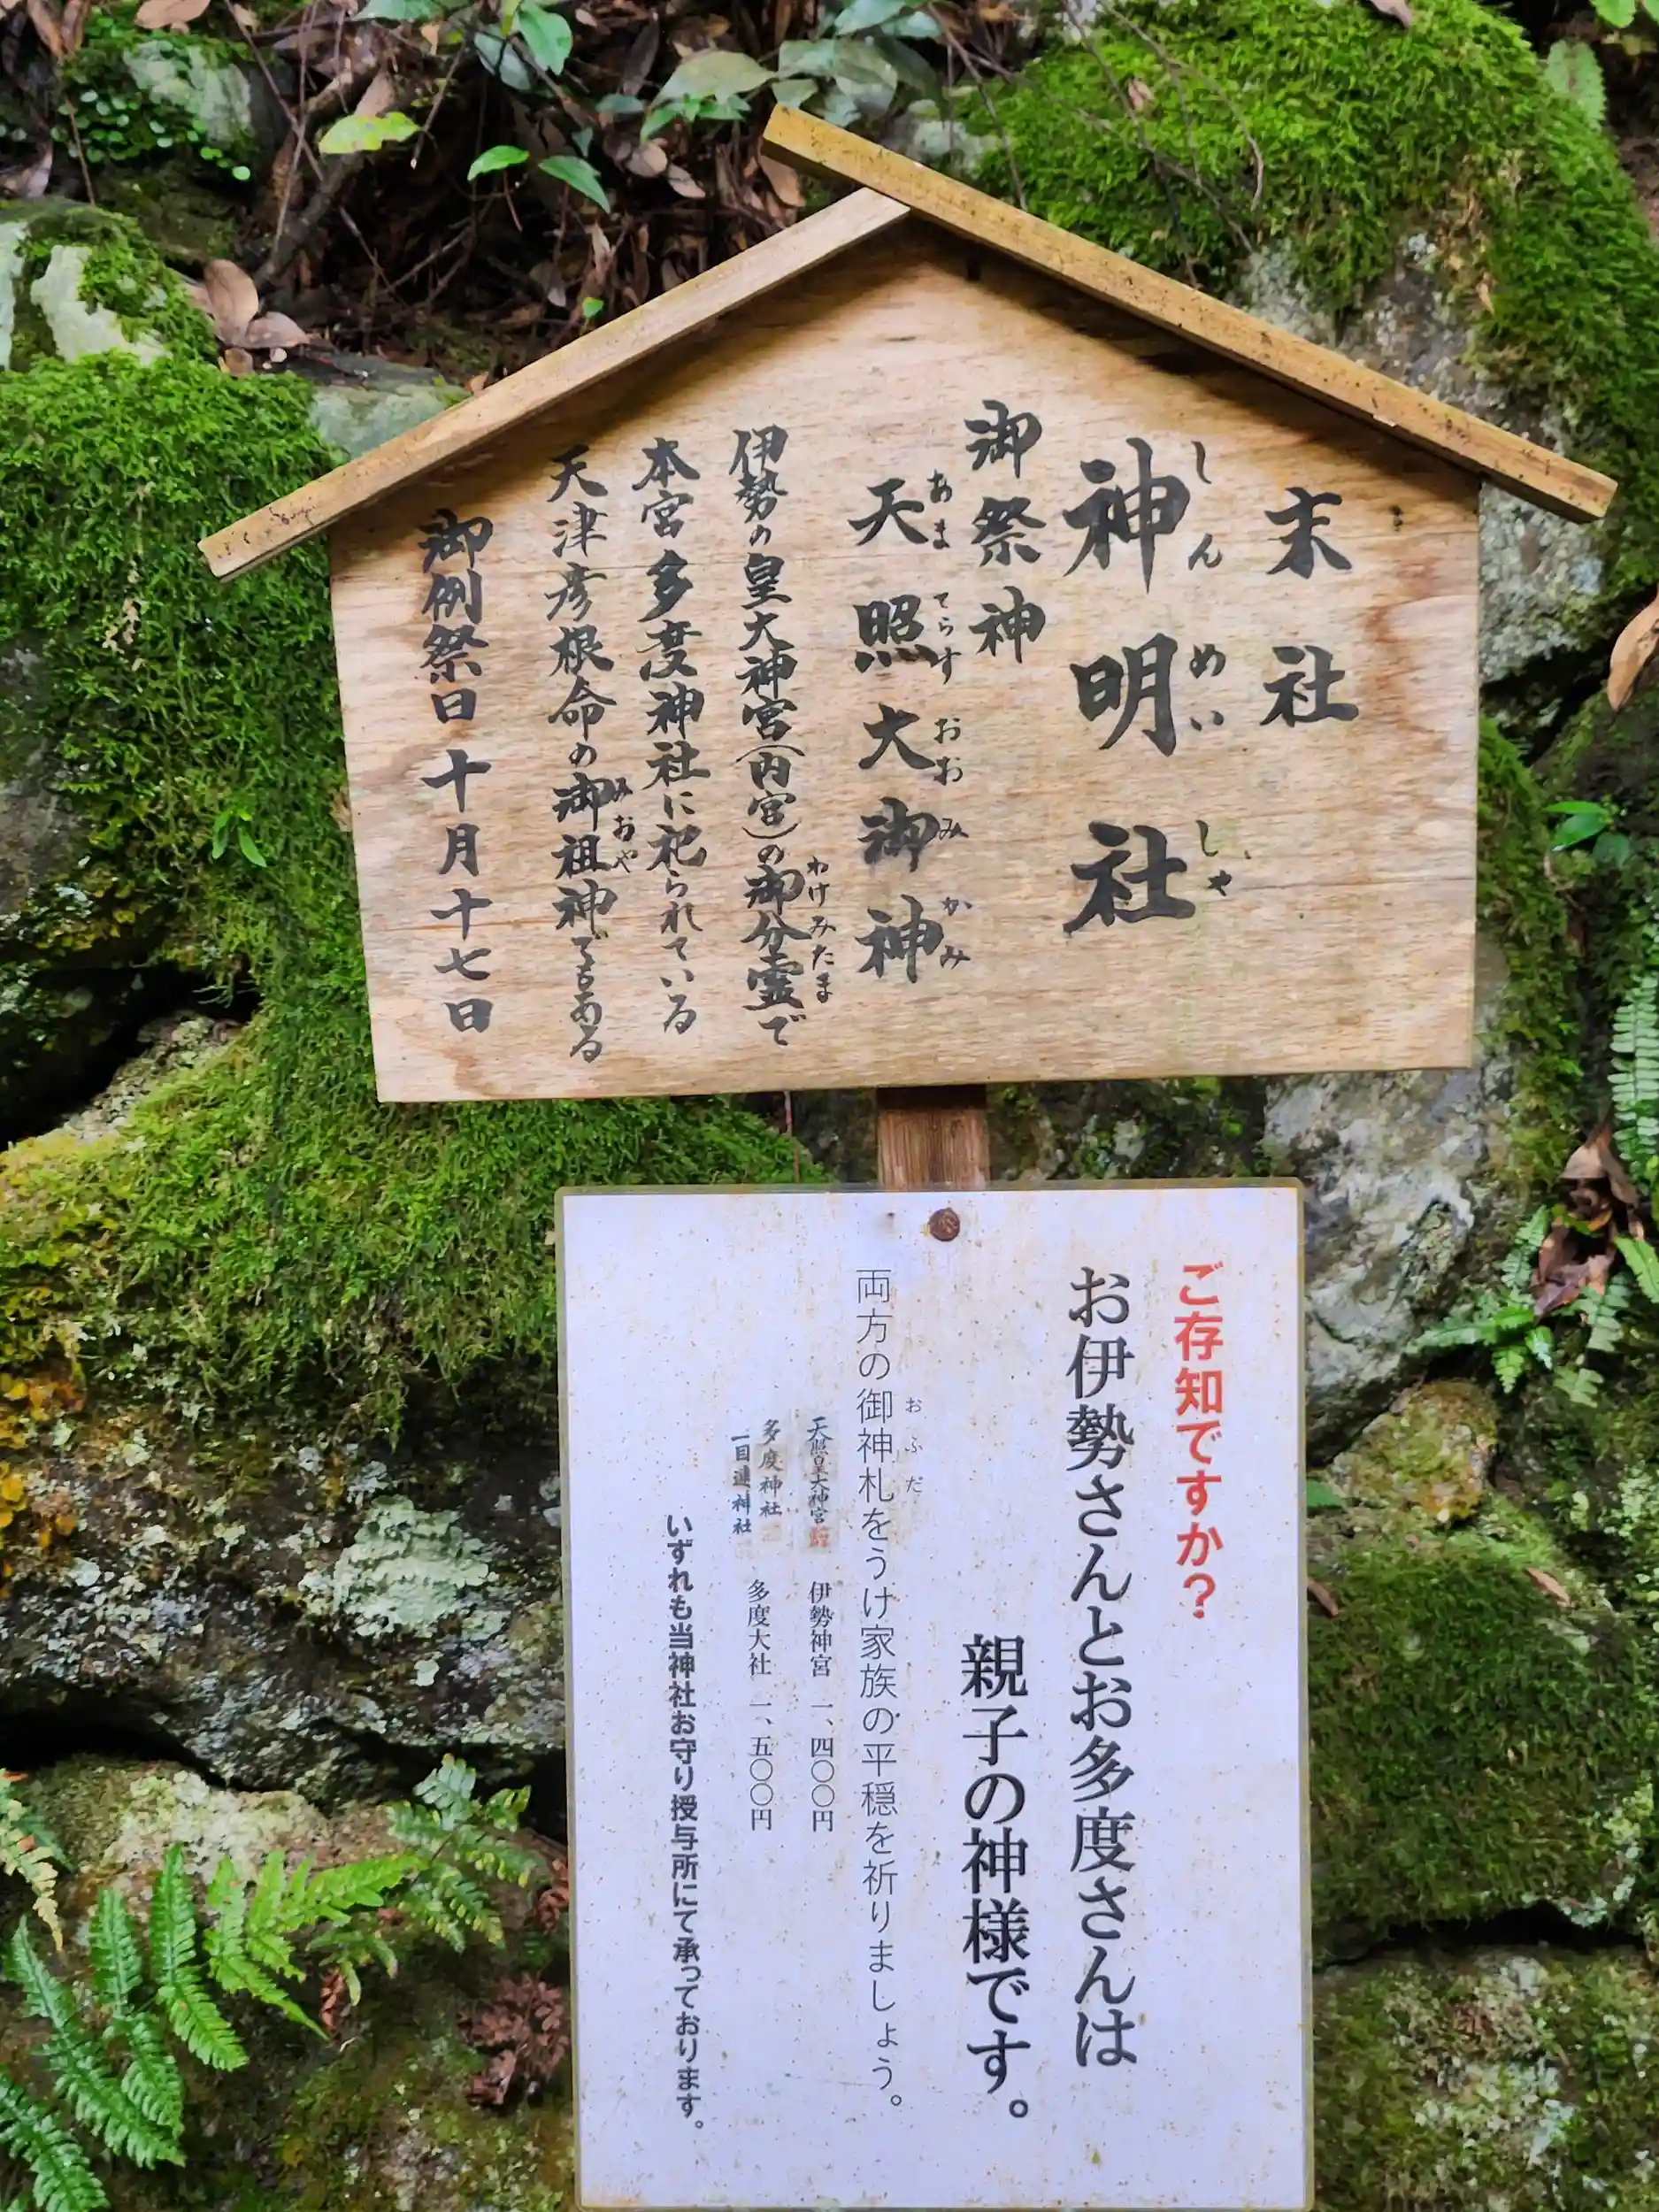 末社
神明社
しんめいしゃ
御祭神
天照大御神
あまてらすおおみかみ
伊勢の皇大神宮(内宮)の御分霊で
わけみたま
本宮多度神社に祀られている
天津彦根命の御祖神でもある
みおや
御例祭日 十月十七日
ご存知ですか?
お伊勢さんとお多度さんは
親子の神様です。
両方の御神札をうけ家族の平穏を祈りましょう。
おふだ
天照皇大神宮 伊勢神宮 一、四〇〇円
多度神社
一目連神社 多度大社 一、五〇〇円
いずれも当神社お守り授与所にて承っております。